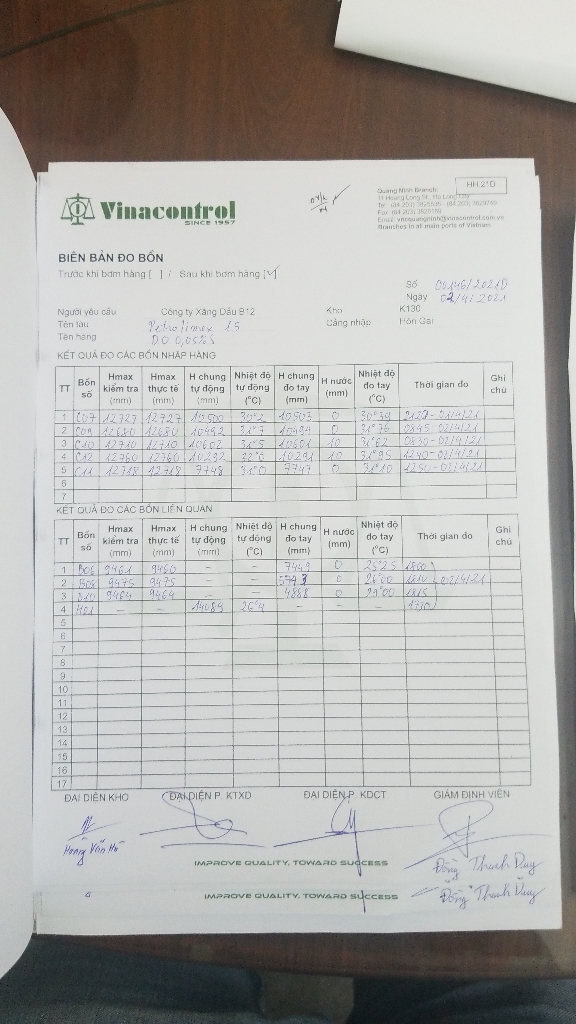 HH 21D
Vinacontrol
SINCE 1957
Quang Ninh Branch:
11 Hoang Long St., Ha Long City
Branches in all main ports of Vietnam
BIÊN BẢN ĐO BỒN
Trước khi bơm hàng [ ] / Sau khi bơm hàng [✓]
Số 00146/2021D
Ngày 02/4/2021
Người yêu cầu Công ty Xăng Dầu B12 Kho K130
Tên tàu Petrolimex 15 Cảng nhập Hòn Gai
Tên hàng DO 0,05%S
KẾT QUẢ ĐO CÁC BỒN NHẬP HÀNG
TT Bồn số Hmax kiểm tra (mm) Hmax thực tế (mm) H chung tự động (mm) Nhiệt độ tự động (°C) H chung đo tay (mm) H nước (mm) Nhiệt độ đo tay (°C) Thời gian đo Ghi chú
1 C07 12727 12727 10500 30°2 10503 0
2 12680 12680 10492 31°7 10494 0 31°76 0845-02/4/21
3 C10 12710 12710 10602 31°5 10601 10 31°62 0830-02/4/21
4 C12 12760 12760 10292 32°0 10291 10 31°95 1240-02/4/21
5 C11 12718 12718 7748 31°0 7747 0 31°10 1250-02/4/21
6
7
KẾT QUẢ ĐO CÁC BỒN LIÊN QUAN
TT Bồn số Hmax kiểm tra (mm) Hmax thực tế (mm) H chung tự động (mm) Nhiệt độ tự động (°C) H chung đo tay (mm) H nước (mm) Nhiệt độ đo tay (°C) Thời gian đo Ghi chú
1 B06 9461 9460 – – 7449 0 25°25 1800
2 B08 9475 9475 – – 5743 0 26°00 1810 02/4/21
3 B10 9464 9464 – – 4888 0 29°00 1815
4 H01 – – 14089 26°4 – – – 1730
5
6
7
8
9
10
11
12
13
14
15
16
17
ĐẠI DIỆN KHO ĐẠI DIỆN P. KTXD ĐẠI DIỆN P. KDCT GIÁM ĐỊNH VIÊN
Hoàng Văn Hà
Đồng Thanh Duy
IMPROVE QUALITY, TOWARD SUCCESS
Đồng Thanh Duy
6 IMPROVE QUALITY, TOWARD SUCCESS